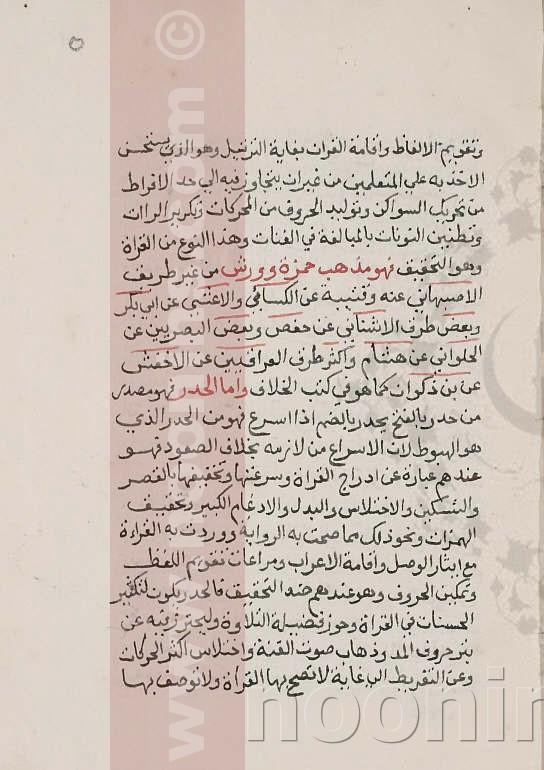 وتقويم الالفاظ واقامة القران بغاية الترتيل وهو الذي يستحسن
الاخذ به على المتعلمين من غير ان يتجاوز فيه الى حد الافراط
من تحريك السواكن وتوليد الحروف من الحركات وتكرير الراات
وتطنين النونات بالمبالغة في الغنات وهذا النوع من القراة
وهو التحقيق فهو مذهب حمزة وورش من غير طريف
الاصبهاني عنه وقتيبة عن الكسائي والاعشى عن ابي بكر
وبعض طرف الاشناني عن حفص وبعض البصريين عن
الحلواني عن هشام واكثر طرف العراقيين عن الاخفش
عن بن ذكوان كما هو في كتب الخلاف واما الحدر فهو مصدر
من حدر بالفتح يحدر بالضم اذا اسرع فهو من الحدر الذي
هو الهبوط لان الاسراع من لازمه بخلاف الصعود فهو
عندهم عبارة عن ادراج القراة وسرعتها وتخفيفها بالقصر
والتسكين والاختلاس والبدل والادغام الكبير وتخفيف
الهمزات ونحو ذلك مما صحت به الرواية ووردت به القراءة
مع ايثار الوصل واقامة الاعراب ومراعات تقويم اللفظ
وتمكين الحروف وهو عندهم ضد التحقيق فالحدر يكون لتكثير
الحسنات في القراة وحوز فضيلة التلاوة وليحترز فيه عن
بتر حروف المد وذهاب صوت الغنة واختلاس اكثر الحركات
وعن التفريط الى غاية لا تصح بها القراة ولا توصف بها
www. .com ©
noonin